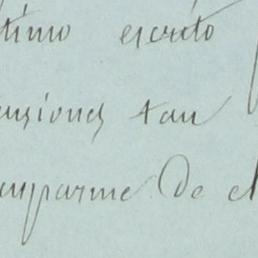 timo escrito
ensiones tan
ayparme de el